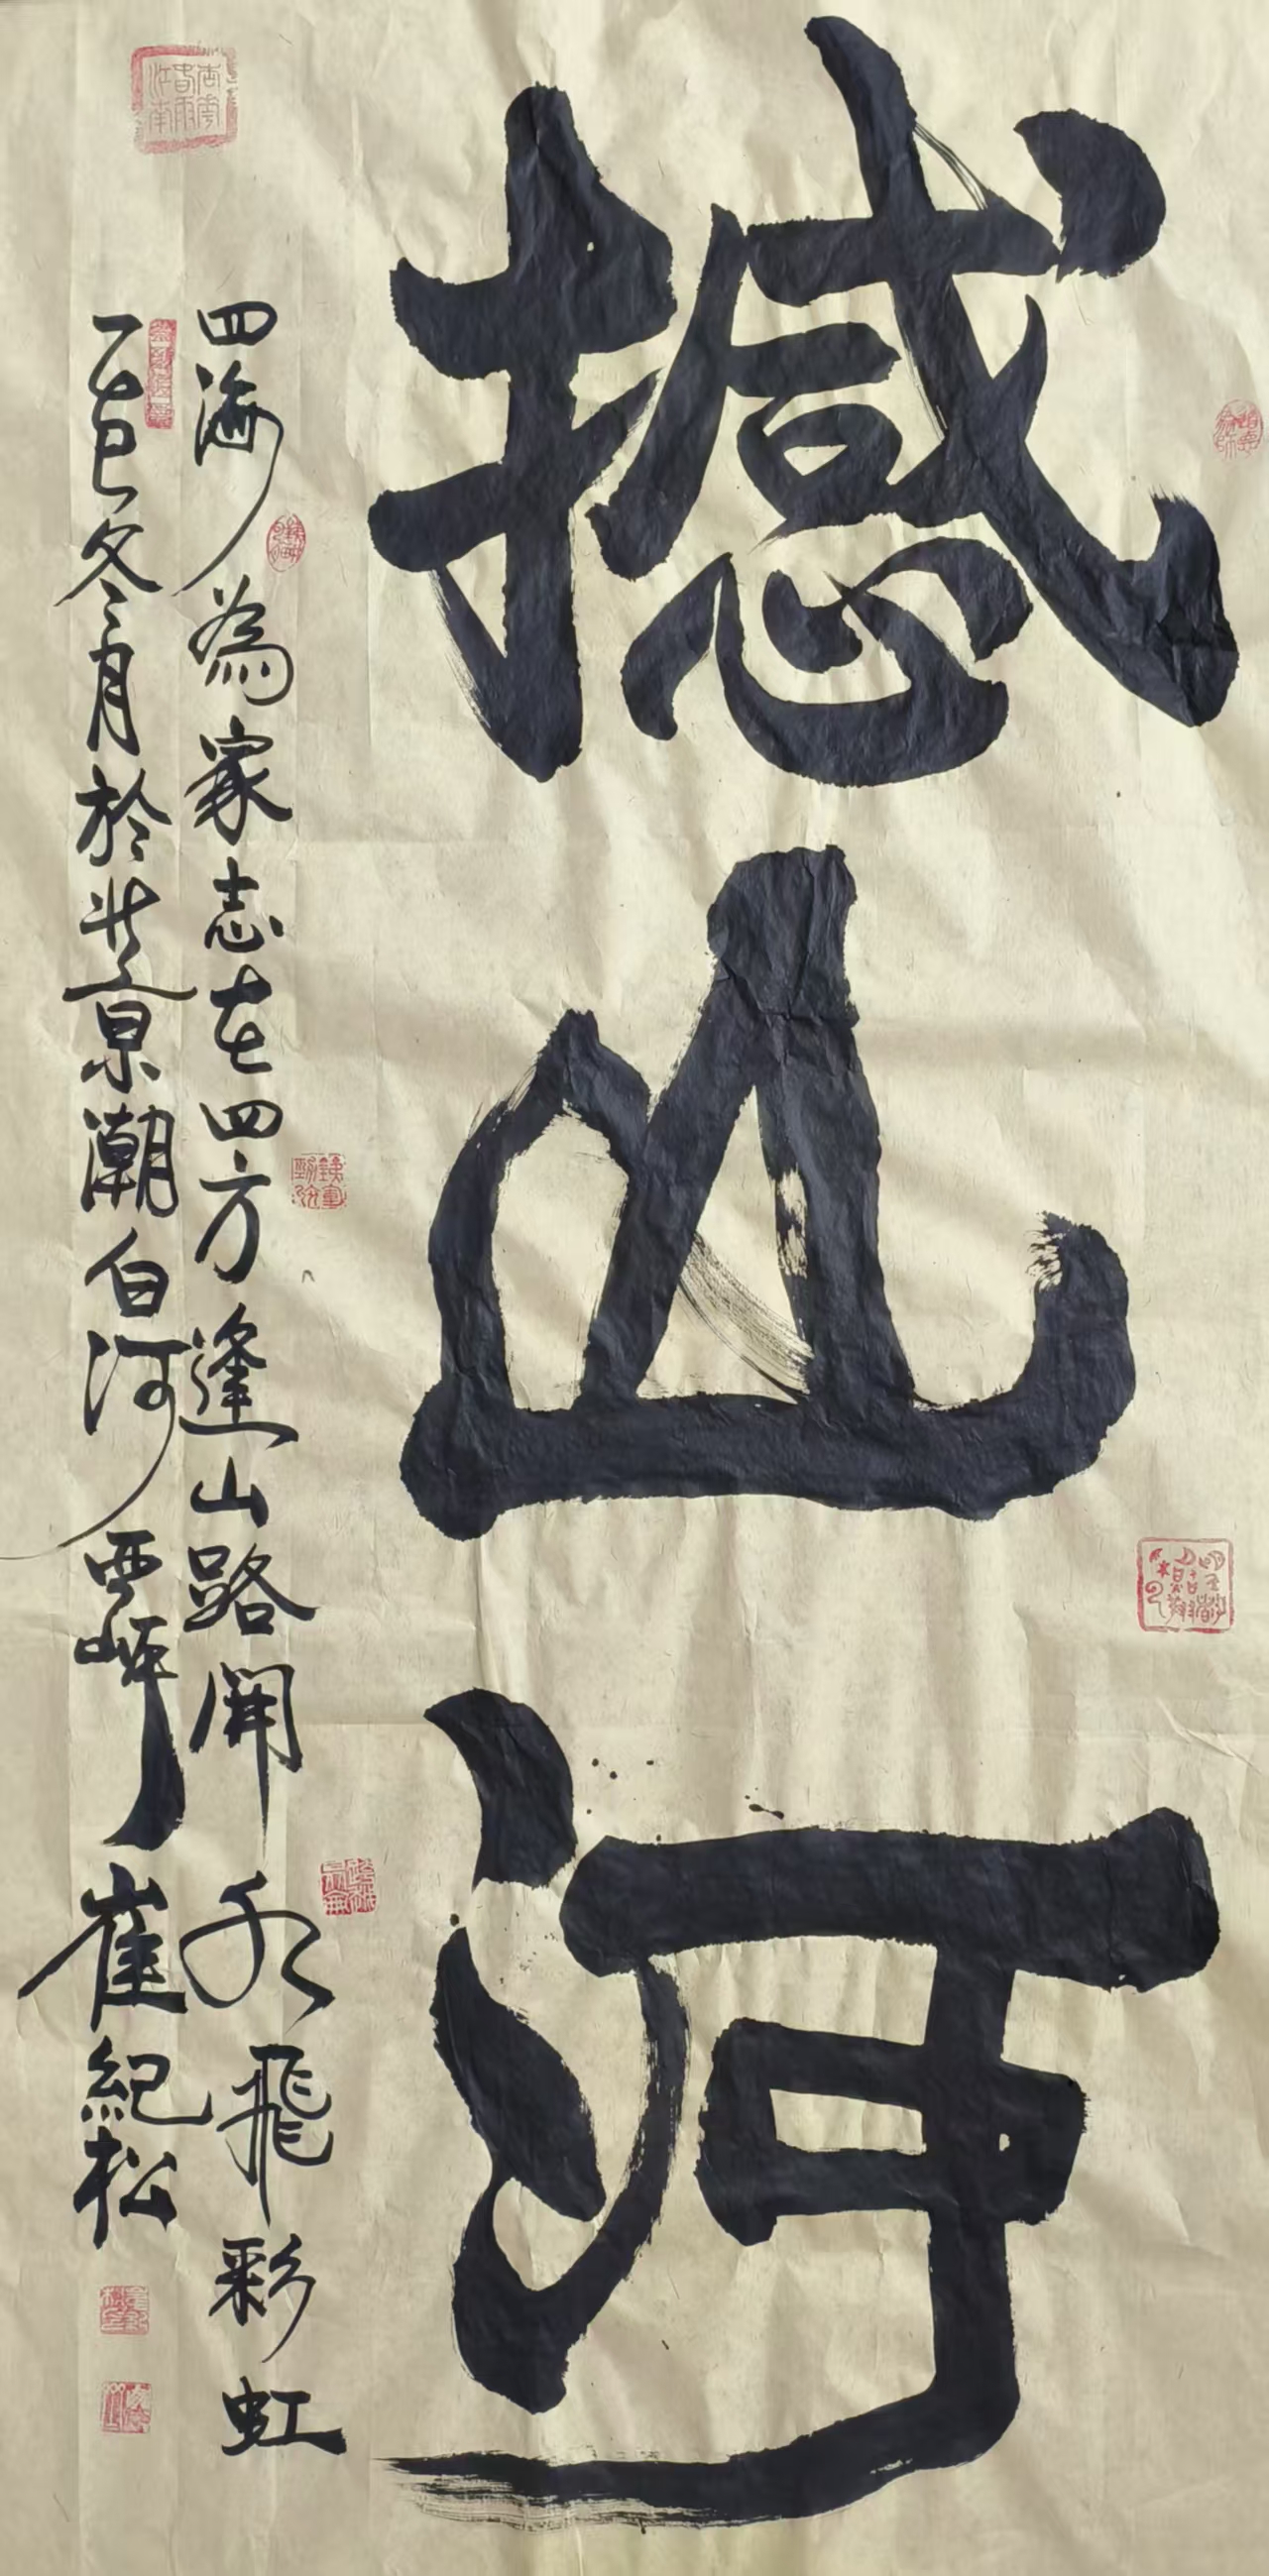 撼山河
四海為家志在四方逢山路開水飛彩虹
乙巳冬月於北京潮白河西岸崔紀松